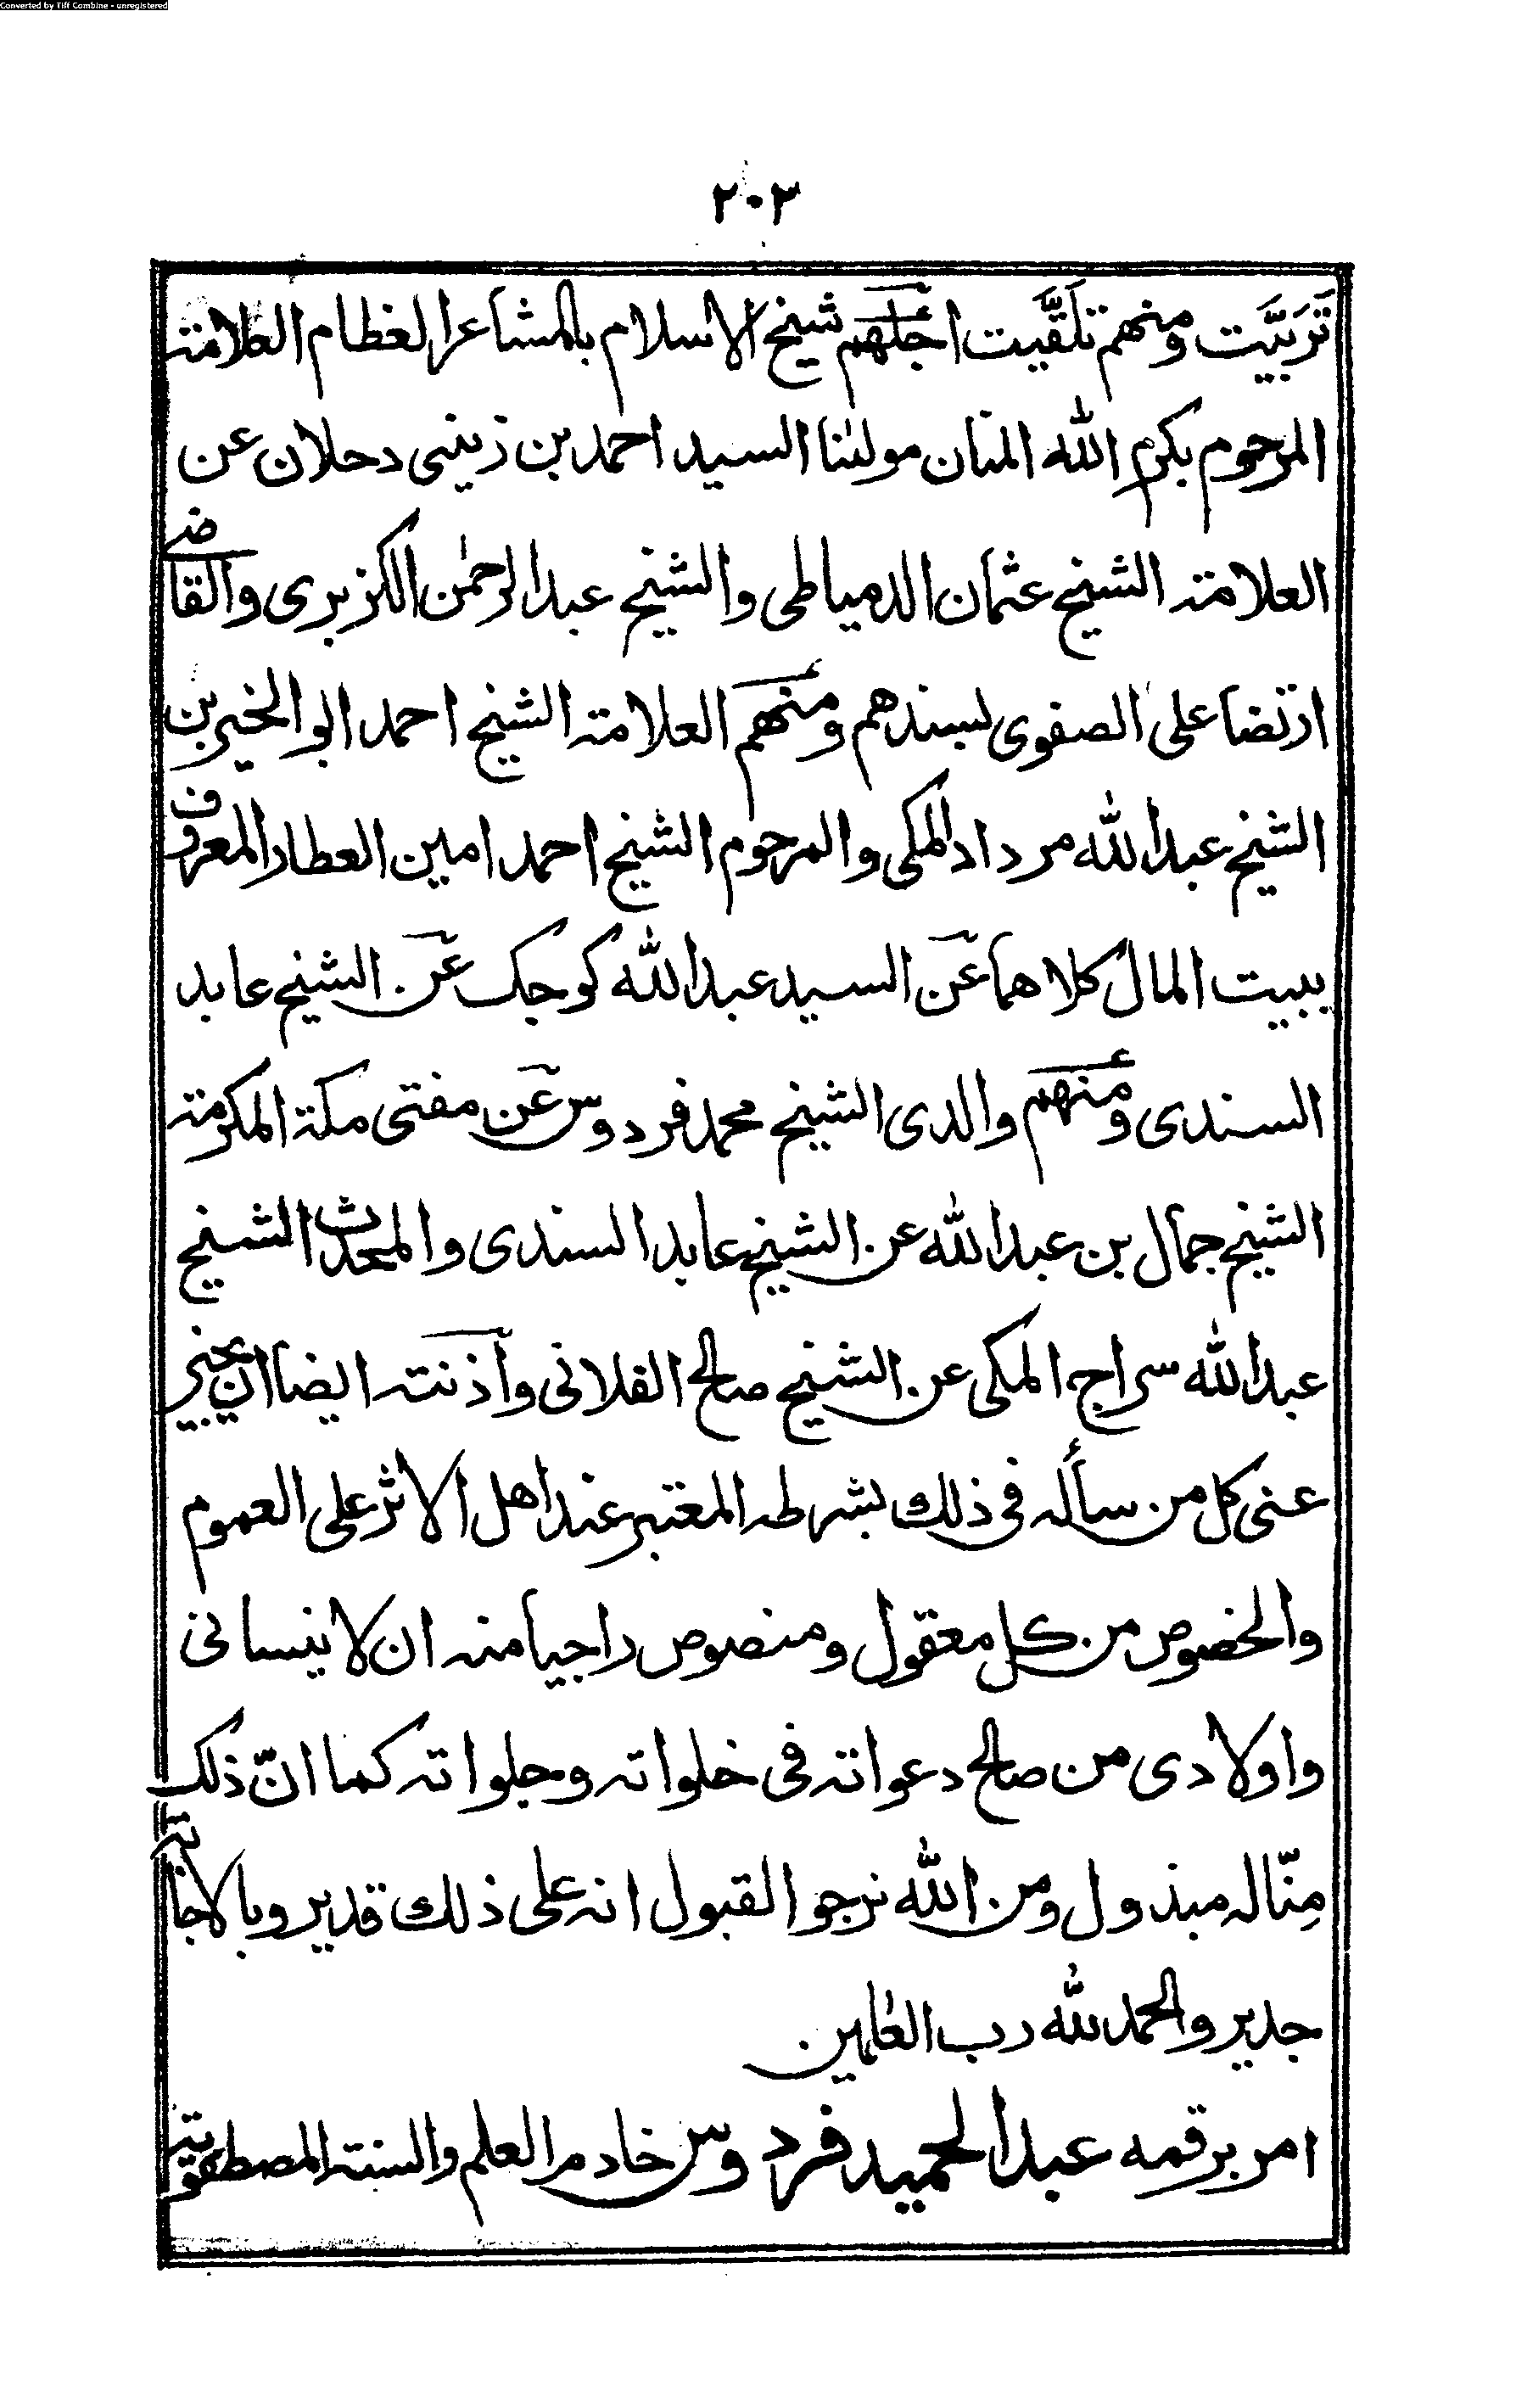 Converted by Tiff Combine - unregistered
٢٠٣
تَرَبَّيَت ومنهم تَلَقَّيت اَجَلّهم شيخ الاسلام بالمشاعر العظام العلامة
المرحوم بكرم الله المنان مولٰنا السيد احمد بن زينى دحلان عن
العلامة الشيخ عثمان الدمياطى والشيخ عبد الرحمٰن الكزبرى والقاضے
ارتضا على الصفوى بسندهم ومنهم العلامة الشيخ احمد ابو الخير بن
الشيخ عبد الله مرداد المكى والمرحوم الشيخ احمد امين العطار المعروف
ببيت المال كلاهما عن السيد عبد الله كوجك عن الشيخ عابد
السندى ومنهم والدى الشيخ محمد فردوس عن مفتى مكة المكرمة
الشيخ جمال بن عبد الله عن الشيخ عابد السندى والمحدث الشيخ
عبد الله سراج المكى عن الشيخ صالح الفلانى وأذنته ايضا ان يجيز
عنى كل من سأله فى ذلك بشرطه المعتبر عند اهل الاثر على العموم
والخصوص من كل معقول ومنصوص راجيا منه ان لا ينسانى
واولادى من صالح دعواته فى خلواته وجلواته كما انّ ذلك
مِنّا له مبذول ومن الله نرجو القبول انه على ذلك قدير وبالاجابة
جدير والحمد لله رب العٰلمين
امر برقمه عبد الحميد فردوس خادم العلم والسنة المصطفوية